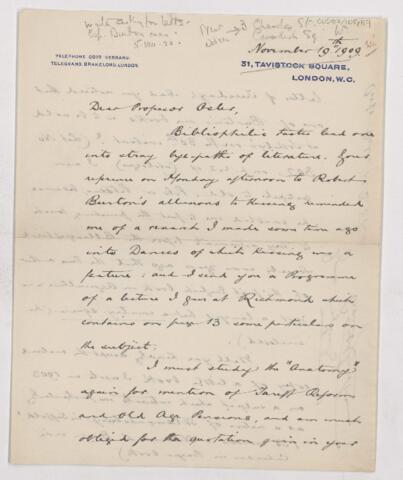 November 19th 1909
TELEPHONE 6018 GERRARD.
TELEGRAMS, BRAKELOND, LONDON.
31, TAVISTOCK SQUARE,
LONDON, W.C.
Dear Professor Osler,
Bibliophilic tastes lead one
into stray bye-paths of literature. Your
reference on Monday afternoon to Robert
Burton's allusions to Kissing reminded
me of a research I made some time ago
into Dances of which Kissing was a
feature; and I send you a Programme
of a lecture I gave at Richmond which
contains on page 13 some particulars on
the subject.
I must study the "Anatomy"
again for mention of Tariff Reform
and Old Age Pensions, and am much
obliged for the quotation given in your